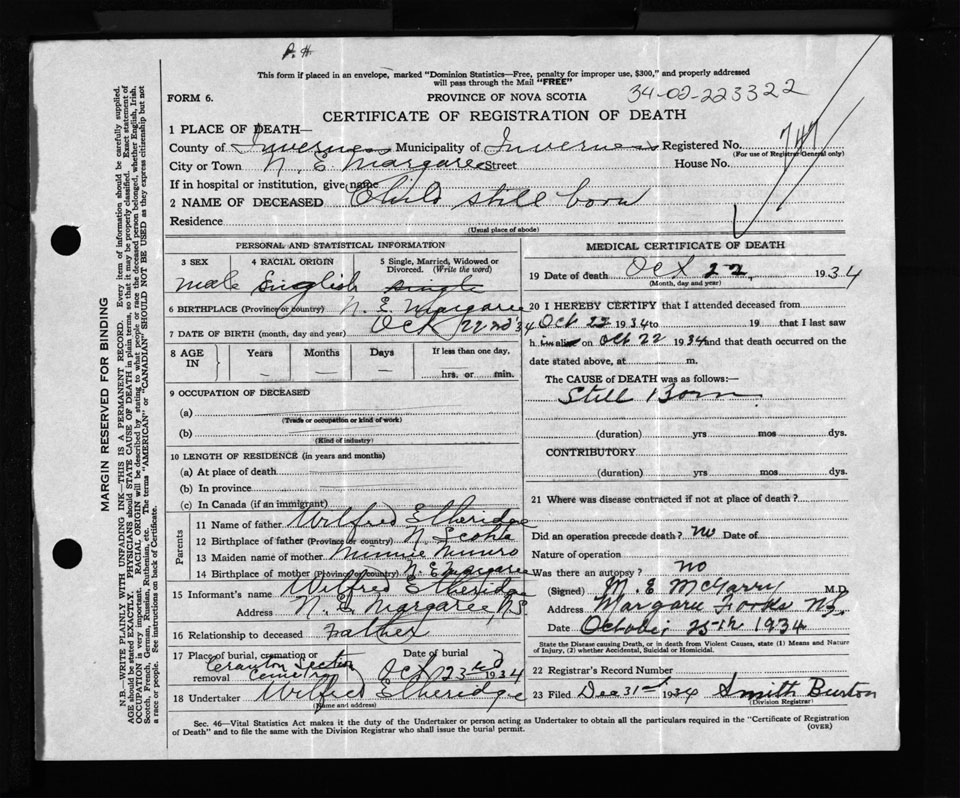 P. H.
This form if placed in an envelope, marked "Dominion Statistics—Free, penalty for improper use, $300," and properly addressed
will pass through the Mail "FREE"
FORM 6.
PROVINCE OF NOVA SCOTIA
34-02-223322
CERTIFICATE OF REGISTRATION OF DEATH
1 PLACE OF DEATH—
County of Inverness Municipality of Inverness Registered No. 747
(For use of Registrar General only)
City or Town N. E. Margaree Street House No.
If in hospital or institution, give name
2 NAME OF DECEASED Child still born
Residence
(Usual place of abode)
PERSONAL AND STATISTICAL INFORMATION
3 SEX 4 RACIAL ORIGIN 5 Single, Married, Widowed or Divorced. (Write the word)
male English single
6 BIRTHPLACE (Province or country) N. E. Margaree
7 DATE OF BIRTH (month, day and year) Oct 22nd '34
8 AGE IN Years Months Days If less than one day,
hrs. or min.
9 OCCUPATION OF DECEASED
(a)
(Trade or occupation or kind of work)
(b)
(Kind of industry)
10 LENGTH OF RESIDENCE (in years and months)
(a) At place of death
(b) In province
(c) In Canada (if an immigrant)
Parents
11 Name of father Wilfred Etheridge
12 Birthplace of father (Province or country) N. Scotia
13 Maiden name of mother Minnie Munro
14 Birthplace of mother (Province or country) N. E. Margaree
15 Informant's name Wilfred Etheridge
Address N. E. Margaree, N.S.
16 Relationship to deceased Father
17 Place of burial, cremation or removal Date of burial
Cranton Section
Cemetry Oct 23rd 1934
18 Undertaker Wilfred Etheridge
(Name and address)
MEDICAL CERTIFICATE OF DEATH
19 Date of death Oct 22, 1934
(Month, day and year)
20 I HEREBY CERTIFY that I attended deceased from
Oct 22 1934 to 19 that I last saw
h alive on Oct 22 1934 and that death occurred on the
date stated above, at m.
The CAUSE of DEATH was as follows:—
Still Born
(duration) yrs mos dys.
CONTRIBUTORY
(duration) yrs mos dys.
21 Where was disease contracted if not at place of death?
Did an operation precede death? no Date of
Nature of operation
Was there an autopsy? no
(Signed) M. E. McGarry M.D.
Address Margaree Forks N.S.
Date October 25th 1934
State the Disease causing Death, or in death from Violent Causes, state (1) Means and Nature of Injury, (2) whether Accidental, Suicidal or Homicidal.
22 Registrar's Record Number
23 Filed Dec 31st 1934 Smith Burton
(Division Registrar)
Sec. 46—Vital Statistics Act makes it the duty of the Undertaker or person acting as Undertaker to obtain all the particulars required in the "Certificate of Registration
of Death" and to file the same with the Division Registrar who shall issue the burial permit.
(OVER)
MARGIN RESERVED FOR BINDING
N.B.—WRITE PLAINLY WITH UNFADING INK—THIS IS A PERMANENT RECORD. Every item of information should be carefully supplied.
AGE should be stated EXACTLY. PHYSICIANS should STATE CAUSE OF DEATH in plain terms, so that it may be properly classified. Exact statement of
OCCUPATION is very important. RACIAL ORIGIN will be described by stating to what people or race the deceased person belonged, whether English, Irish,
Scotch, French, German, Russian, Ruthenian, etc. The terms "AMERICAN" or "CANADIAN" SHOULD NOT BE USED as they express citizenship but not
a race or people. See instructions on back of Certificate.